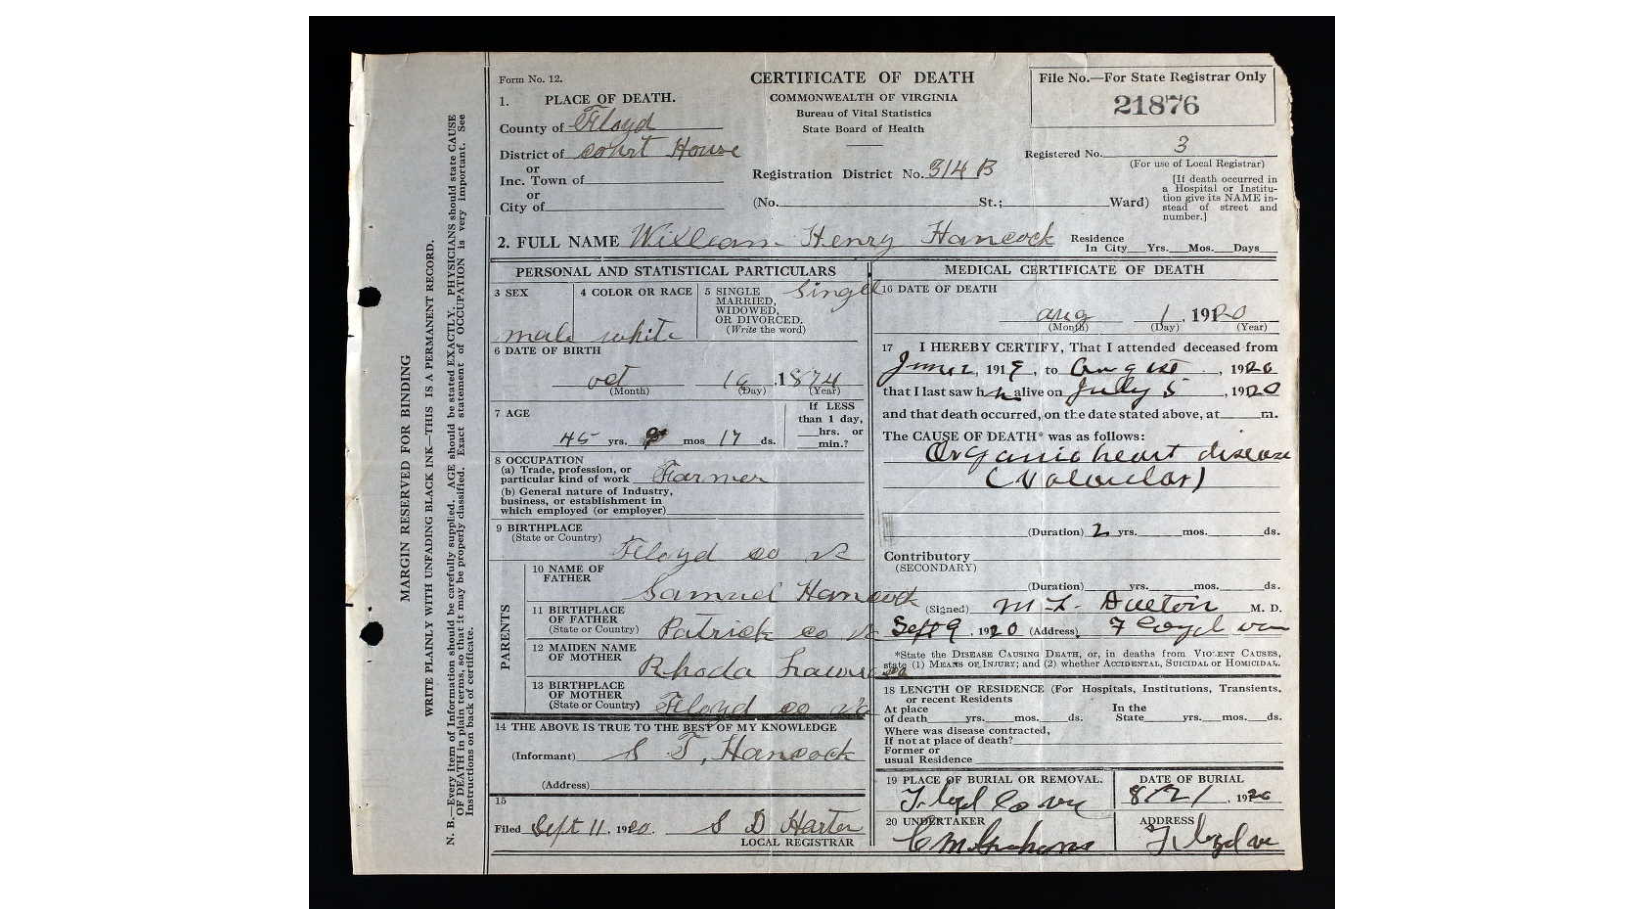 Form No. 12.
CERTIFICATE OF DEATH
COMMONWEALTH OF VIRGINIA
Bureau of Vital Statistics
State Board of Health
File No.—For State Registrar Only
21876
1. PLACE OF DEATH.
County of Floyd
District of court House
or
Inc. Town of
or
City of
Registration District No. 314 B
(No. St.; Ward)
Registered No. 3
(For use of Local Registrar)
[If death occurred in
a Hospital or Institu-
tion give its NAME in-
stead of street and
number.]
2. FULL NAME William Henry Hancock
Residence
In City Yrs. Mos. Days
PERSONAL AND STATISTICAL PARTICULARS
3 SEX
male
4 COLOR OR RACE
white
5 SINGLE
MARRIED,
WIDOWED,
OR DIVORCED.
(Write the word)
Single
6 DATE OF BIRTH
oct 16 1874
(Month) (Day) (Year)
7 AGE
45 yrs. 9 mos 17 ds.
If LESS
than 1 day,
hrs. or
min.?
8 OCCUPATION
(a) Trade, profession, or
particular kind of work Farmer
(b) General nature of Industry,
business, or establishment in
which employed (or employer)
9 BIRTHPLACE
(State or Country)
Floyd co va
PARENTS
10 NAME OF
FATHER
Samuel Hancock
11 BIRTHPLACE
OF FATHER
(State or Country)
Patrick co va
12 MAIDEN NAME
OF MOTHER
Rhoda
13 BIRTHPLACE
OF MOTHER
(State or Country)
Floyd co va
14 THE ABOVE IS TRUE TO THE BEST OF MY KNOWLEDGE
(Informant) S T, Hancock
(Address)
15
Filed Sept 11, 1920. S D Harter
LOCAL REGISTRAR
MEDICAL CERTIFICATE OF DEATH
16 DATE OF DEATH
aug 1, 1920
(Month) (Day) (Year)
17 I HEREBY CERTIFY, That I attended deceased from
June, 1919, to Aug 1st, 1920
that I last saw h alive on July 5, 1920
and that death occurred, on the date stated above, at m.
The CAUSE OF DEATH* was as follows:
Organic heart disease
(Valvular)
(Duration) 2 yrs. mos. ds.
Contributory
(SECONDARY)
(Duration) yrs. mos. ds.
(Signed) M. L. M. D.
Sept 9, 1920 (Address) Floyd
*State the DISEASE CAUSING DEATH, or, in deaths from VIOLENT CAUSES,
state (1) MEANS OF INJURY; and (2) whether ACCIDENTAL, SUICIDAL OR HOMICIDAL.
18 LENGTH OF RESIDENCE (For Hospitals, Institutions, Transients,
or recent Residents
At place
of death yrs. mos. ds.
In the
State yrs. mos. ds.
Where was disease contracted,
If not at place of death?
Former or
usual Residence
19 PLACE OF BURIAL OR REMOVAL.
Floyd Co
DATE OF BURIAL
8/2/, 1920
20 UNDERTAKER
C M
ADDRESS
Floyd va
MARGIN RESERVED FOR BINDING
WRITE PLAINLY WITH UNFADING BLACK INK—THIS IS A PERMANENT RECORD.
N. B.—Every item of Information should be carefully supplied. AGE should be stated EXACTLY. PHYSICIANS should state CAUSE
OF DEATH in plain terms, so that it may be properly classified. Exact statement of OCCUPATION is very important. See
Instructions on back of certificate.